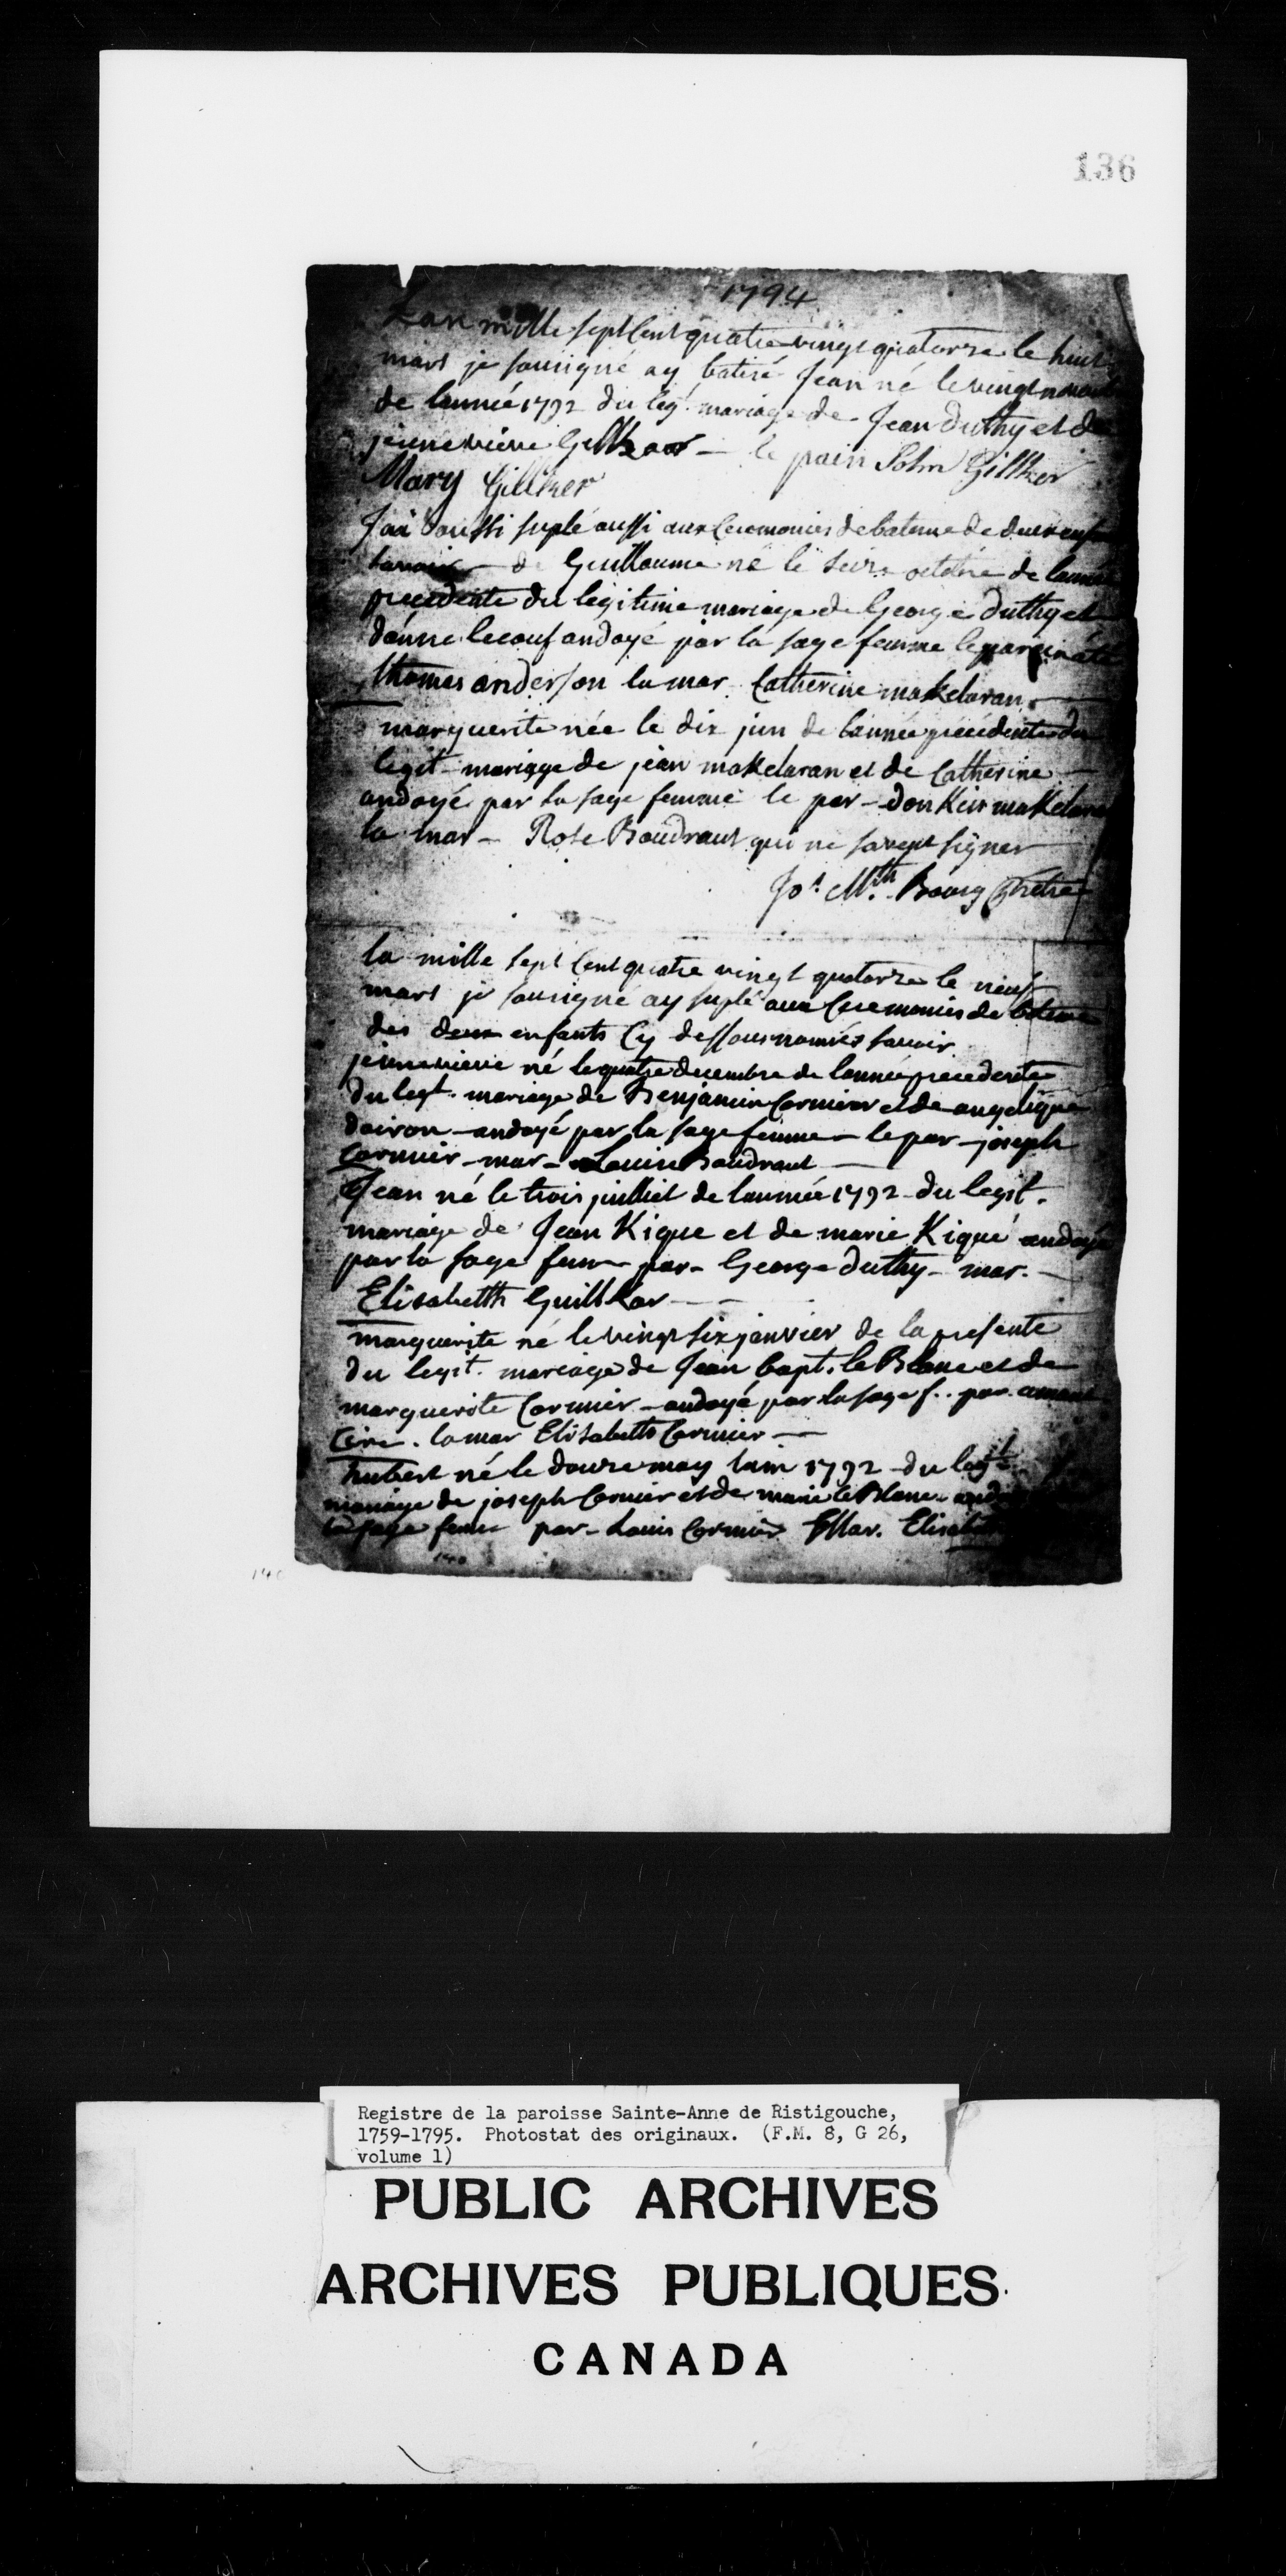 136
1794
Lan mille sept Cent quatre vingt quatorze le huit
mars je sousigné ay batisé Jean né le vingt
de lannée 1792 du leg. mariage de Jean Duthy et de
jenneviève Gilker — le parin John Gillker
Mary Gillker
Jai aussi suplé aussi aux Ceremonies de bateme de deux
savoir — de Guillaume né le seize octobre de lannée
precedente du légitime mariage de George duthy et
danne lecouf andoyé par la sage femme le parin été
thomas anderson la mar Catherine makelaran.
marguerite née le dix juin de lannée précédente du
legit- mariage de jean makelaran et de Catherine —
andoyé par la sage femme le par - donkin makelaran
la mar - Rose Boudraut qui ne savent signer
Jos. Mth. Bourg Prêtre
la mille sept Cent quatre vingt quatorze le neuf
mars je sousigné ay suplé aux Ceremonies de bateme
des deux enfants Cy dessous nomées savoir
jennevieve né le quatre decembre de lannée precedente
du legt. mariage de Benjamin Cormier et de angelique
doiron - andoyé par la sage femme - le par - joseph
Cormier - mar - Louise Boudraut —
Jean né le trois juilliet de lannée 1792 - du legit.
mariage de Jean Kique et de marie Kiqué andoyé
par la sage femme par - George duthy - mar. —
Elisabeth Guillkar — —
marguerite né le vingt six janvier de la presente
du legit. mariage de Jean bapt. le Blanc et de
marguerite Cormier - andoyé par la sage f.. par. amant
Cire. la mar Elisabeth Cormier —
hubert né le douze may lain 1792 - du legt.
mariage de joseph Cormier et de marie le Blanc -
la sage femme par - Louis Cormier Mar. Elisabeth
140
140
Registre de la paroisse Sainte-Anne de Ristigouche,
1759-1795. Photostat des originaux. (F.M. 8, G 26,
volume 1)
PUBLIC ARCHIVES
ARCHIVES PUBLIQUES
CANADA